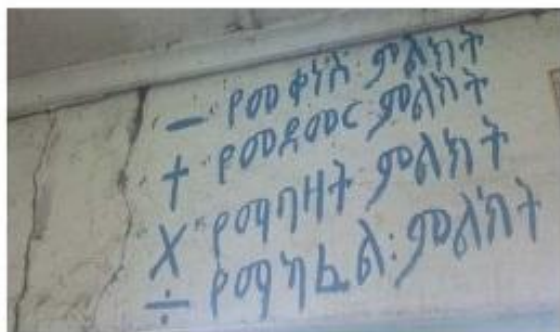 — የመቀነስ ምልክት
+ የመደመር ምልክት
X የማባዛት ምልክት
÷ የማካፈል: ምልክት